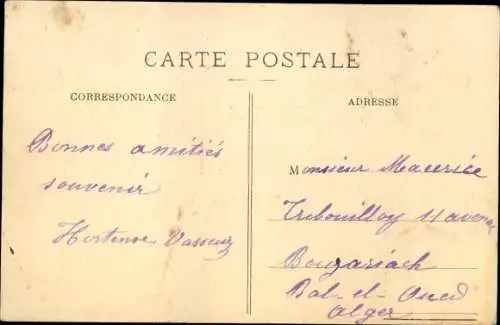 CARTE POSTALE
CORRESPONDANCE
ADRESSE
Bonnes amitiés
souvenir
Hortense Vasseur
Monsieur Maurice
Tribouilloy 11 avenue
Bouzariach
Bab-el-Oued
Alger